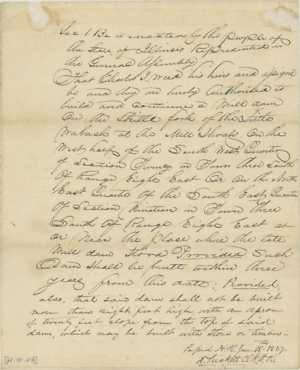 Sec. 1 Be it enacted by the people of
the State of Illinois Represented in
the General Assembly
That Charles I. Weed his heirs and assigns
be and they are hereby authorized to
build and continue a Mill dam
On the Skillet fork of the Little
Wabash at the Mill Shoals On the
West half of the South West Quarter
of Section Twenty in Town three South
Of Range Eight East Or On the North
East Quarter Of the South East Quarter
Of Section Nineteen in Town three
South Of Range Eight East at
or Near the Place where the late
Mill dam stood Provided Such
Dam shall be built within three
years from this date; Provided
also, that said dam shall not be built
more than eight feet high with an apron
of twenty feet slope from the top of said
dam, which may be built with stone or timber.
Passed H.R. Jan. 18. 1837.